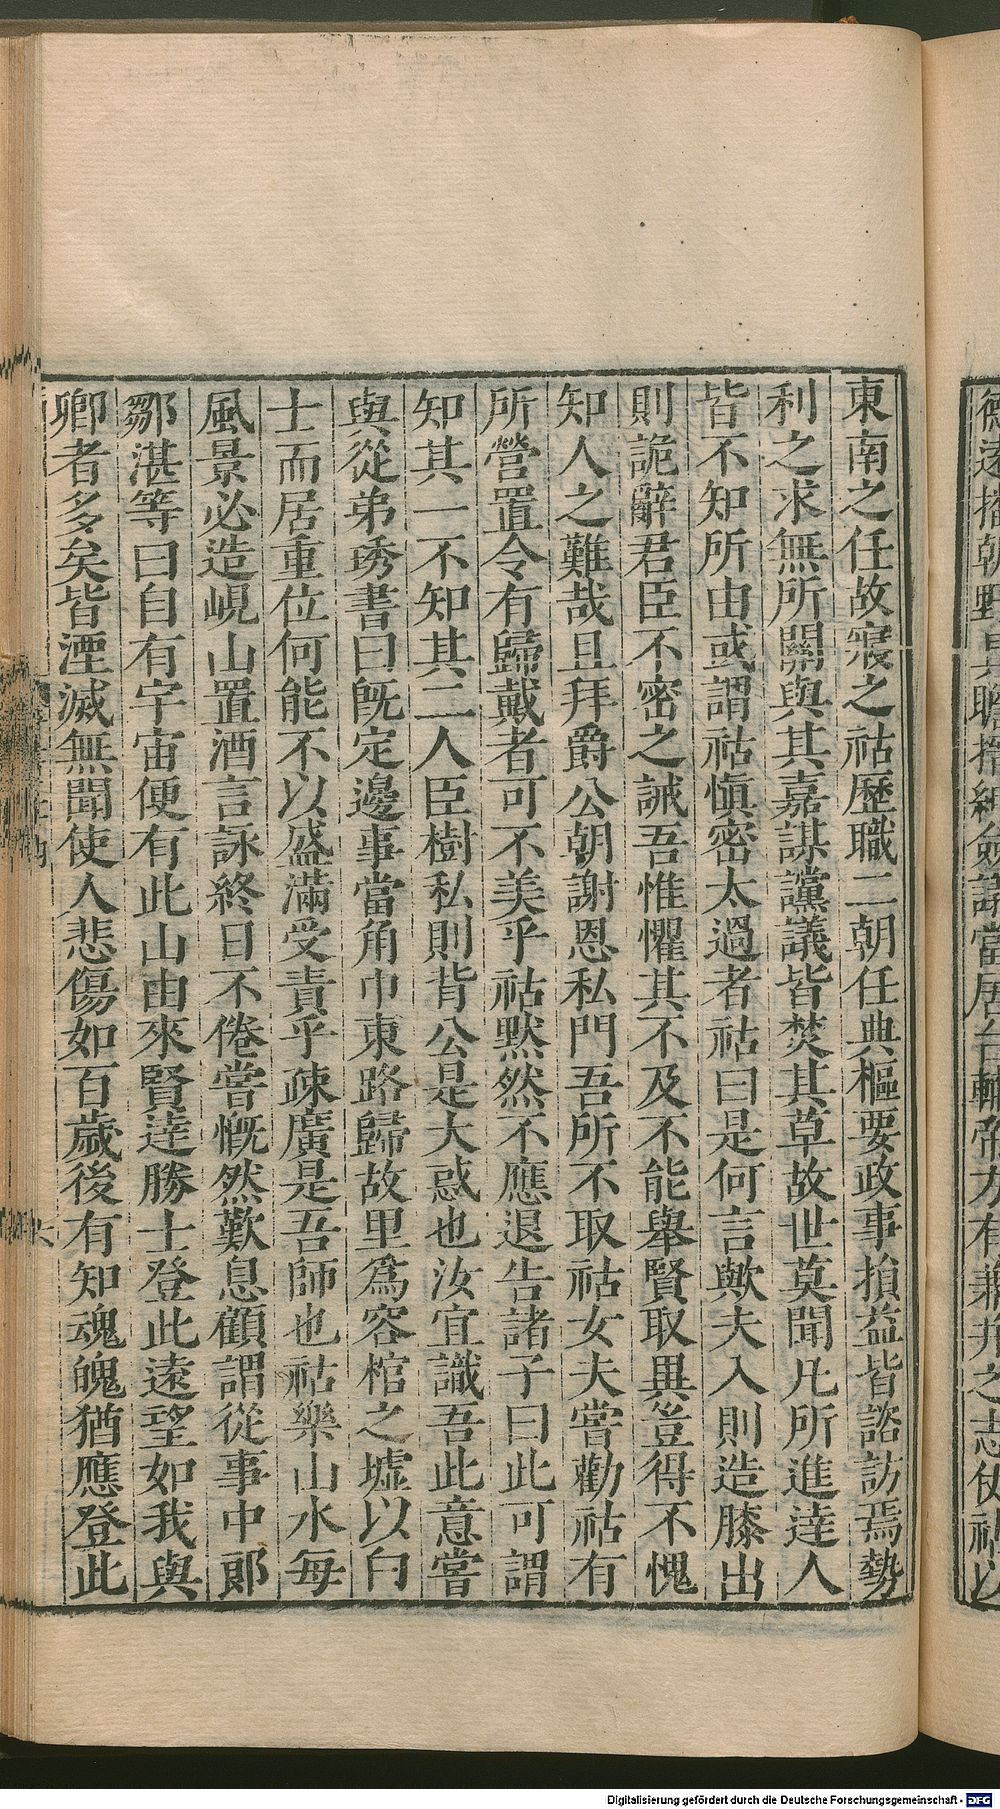 東南之任故寢之祜歷職二朝任典樞要政事損益皆諮訪焉勢
利之求無所關與其嘉謀讜議皆焚其草故世莫聞凡所進達人
皆不知所由或謂祜慎密太過者祜曰是何言歟夫入則造膝出
則詭辭君臣不密之誡吾惟懼其不及不能舉賢取異豈得不愧
知人之難哉且拜爵公朝謝恩私門吾所不取祜女夫嘗勸祜有
所營置令有歸戴者可不美乎祜默然不應退告諸子曰此可謂
知其一不知其二人臣樹私則背公是大惑也汝宜識吾此意嘗
與從弟琇書曰旣定邊事當角巾東路歸故里爲容棺之墟以白
士而居重位何能不以盛滿受責乎疎廣是吾師也祜樂山水每
風景必造峴山置酒言詠終日不倦嘗慨然歎息顧謂從事中郞
鄒湛等曰自有宇宙便有此山由來賢達勝士登此遠望如我與
卿者多矣皆湮滅無聞使人悲傷如百歲後有知魂魄猶應登此
Digitalisierung gefördert durch die Deutsche Forschungsgemeinschaft - DFG